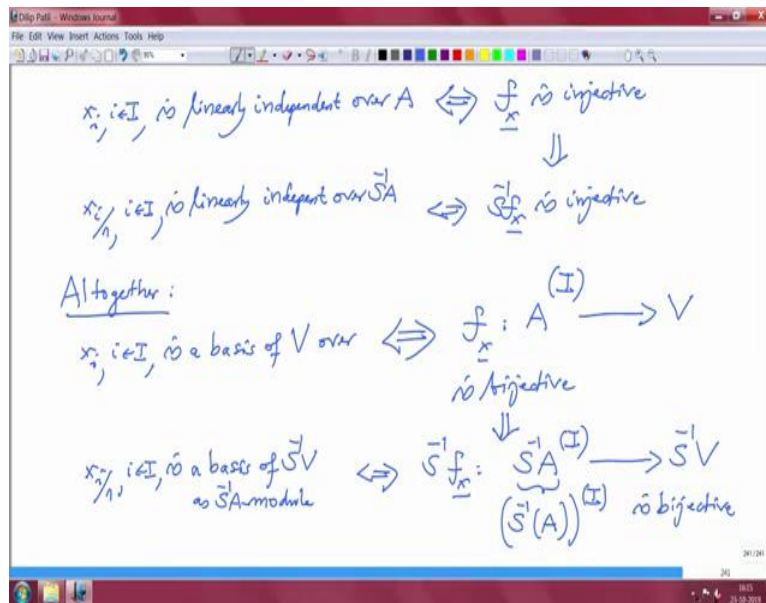 Dilip Patil - Windows Journal
File Edit View Insert Actions Tools Help
x_i, i∈I, is linearly independent over A ⇔ f_x is injective
⇓
x_i/1, i∈I, is linearly indepent over S⁻¹A ⇔ S⁻¹f_x is injective
Altogether:
x_i, i∈I, is a basis of V over ⇔ f_x : A^(I) → V
is bijective
⇓
x_i/1, i∈I, is a basis of S⁻¹V ⇔ S⁻¹f_x : S⁻¹A^(I) → S⁻¹V
as S⁻¹A-module (S⁻¹(A))^(I) is bijective
241/241
241
16:15
25-10-2019